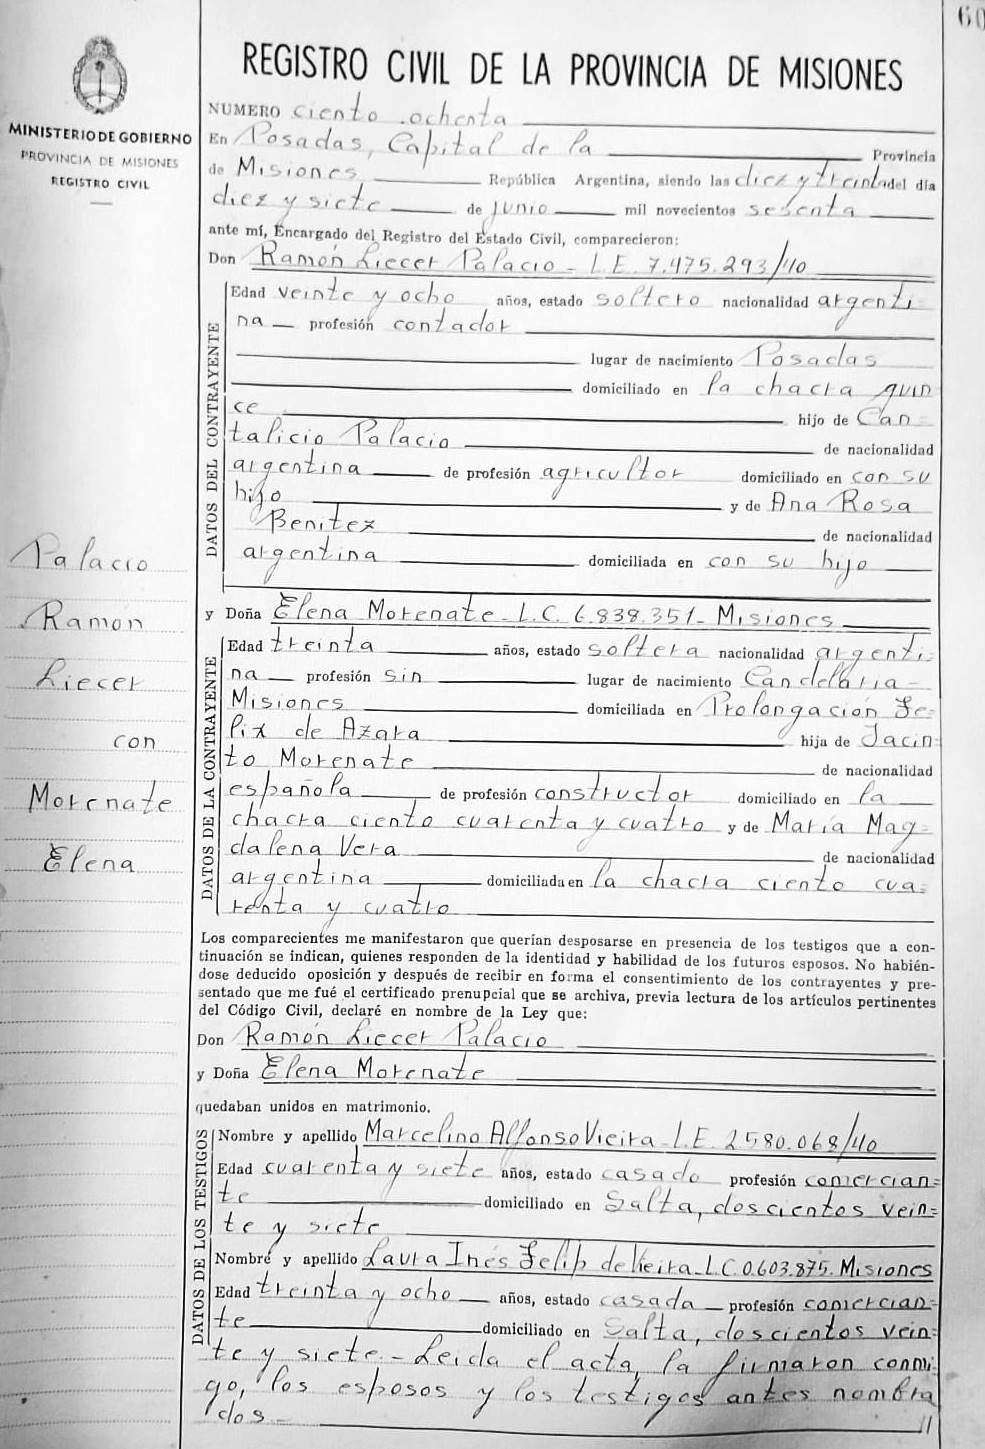 60
MINISTERIO DE GOBIERNO
PROVINCIA DE MISIONES
REGISTRO CIVIL
Palacio
Ramón
Liecer
con
Morenate
Elena
REGISTRO CIVIL DE LA PROVINCIA DE MISIONES
NUMERO ciento ochenta
En Posadas, Capital de la Provincia
de Misiones República Argentina, siendo las diez y treinta del día
diez y siete de junio mil novecientos sesenta
ante mí, Encargado del Registro del Estado Civil, comparecieron:
Don Ramón Liecer Palacio - L.E. 7.475.293/40
DATOS DEL CONTRAYENTE
Edad veinte y ocho años, estado soltero nacionalidad argenti=
na profesión contador
lugar de nacimiento Posadas
domiciliado en la chacra quin
ce hijo de Can=
talicio Palacio de nacionalidad
argentina de profesión agricultor domiciliado en con su
hijo y de Ana Rosa
Benitez de nacionalidad
argentina domiciliada en con su hijo
y Doña Elena Morenate - L.C. 6.838.351 - Misiones
DATOS DE LA CONTRAYENTE
Edad treinta años, estado soltera nacionalidad argenti=
na profesión sin lugar de nacimiento Candelaria -
Misiones domiciliada en Prolongación Fe=
lix de Azara hija de Jacin=
to Morenate de nacionalidad
española de profesión constructor domiciliado en la
chacra ciento cuarenta y cuatro y de María Mag=
dalena Vera de nacionalidad
argentina domiciliada en la chacra ciento cua=
renta y cuatro
Los comparecientes me manifestaron que querían desposarse en presencia de los testigos que a con-
tinuación se indican, quienes responden de la identidad y habilidad de los futuros esposos. No habién-
dose deducido oposición y después de recibir en forma el consentimiento de los contrayentes y pre-
sentado que me fué el certificado prenupcial que se archiva, previa lectura de los artículos pertinentes
del Código Civil, declaré en nombre de la Ley que:
Don Ramón Liecer Palacio
y Doña Elena Morenate
quedaban unidos en matrimonio.
DATOS DE LOS TESTIGOS
Nombre y apellido Marcelino Alfonso Vieira - L.E. 2580.068/40
Edad cuarenta y siete años, estado casado profesión comercian=
te domiciliado en Salta, doscientos vein=
te y siete
Nombre y apellido Laura Inés Felip de Vieira - L.C. 0.603.875. Misiones
Edad treinta y ocho años, estado casada profesión comercian=
te domiciliado en Salta, doscientos vein=
te y siete - Leida el acta, la firmaron conmi
go, los esposos y los testigos antes nombra
dos - //